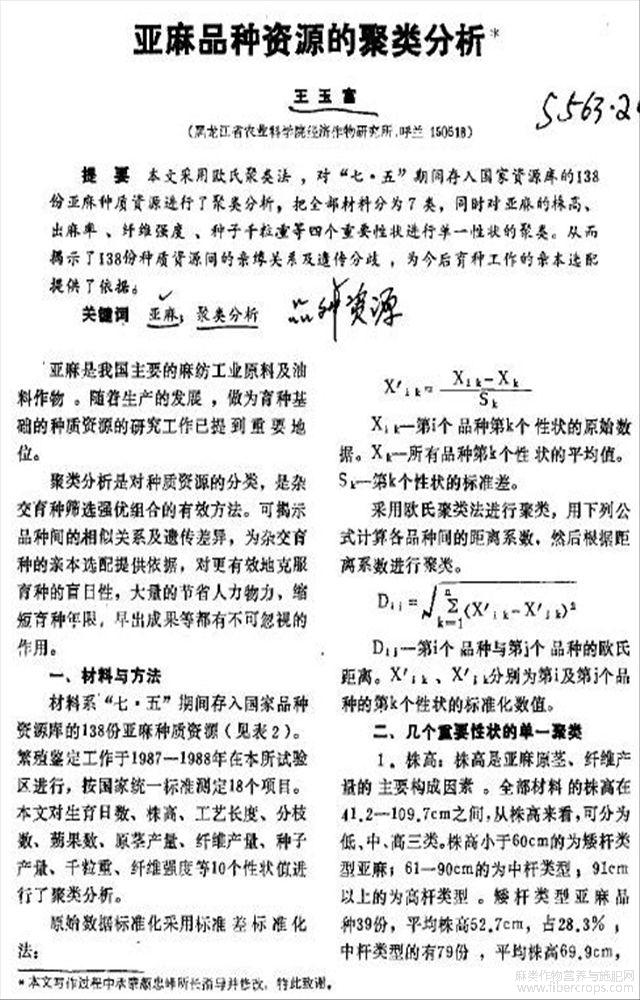 亚麻品种资源的聚类分析*
王玉富
S563.2
(黑龙江省农业科学院经济作物研究所,呼兰 150518)
提 要 本文采用欧氏聚类法,对“七·五”期间存入国家资源库的138
份亚麻种质资源进行了聚类分析,把全部材料分为7类,同时对亚麻的株高、
出麻率、纤维强度、种子千粒重等四个重要性状进行单一性状的聚类。从而
揭示了138份种质资源间的亲缘关系及遗传分歧,为今后育种工作的亲本选配
提供了依据。
关键词 亚麻;聚类分析 品种资源
亚麻是我国主要的麻纺工业原料及油
料作物。随着生产的发展,做为育种基
础的种质资源的研究工作已提到重要地
位。
聚类分析是对种质资源的分类,是杂
交育种筛选强优组合的有效方法。可揭示
品种间的相似关系及遗传差异,为杂交育
种的亲本选配提供依据,对更有效地克服
育种的盲目性,大量的节省人力物力,缩
短育种年限,早出成果等都有不可忽视的
作用。
一、材料与方法
材料系“七·五”期间存入国家品种
资源库的138份亚麻种质资源(见表2)。
繁殖鉴定工作于1987—1988年在本所试验
区进行,按国家统一标准测定18个项目。
本文对生育日数、株高、工艺长度、分枝
数、蒴果数、原茎产量、纤维产量、种子
产量、千粒重、纤维强度等10个性状值进
行了聚类分析。
原始数据标准化采用标准差标准化
法:
X′ik=(Xik-Xk)/Sk
Xik—第i个品种第k个性状的原始数
据。Xk—所有品种第k个性状的平均值。
Sk—第k个性状的标准差。
采用欧氏聚类法进行聚类,用下列公
式计算各品种间的距离系数,然后根据距
离系数进行聚类。
Dij=√Σ(X′ik-X′jk)² n k=1
Dij—第i个品种与第j个品种的欧氏
距离。X′ik、X′jk分别为第i及第j个品
种的第k个性状的标准化数值。
二、几个重要性状的单一聚类
1。株高:株高是亚麻原茎、纤维产
量的主要构成因素。全部材料的株高在
41.2—109.7cm之间,从株高来看,可分为
低、中、高三类。株高小于60cm的为矮杆类
型亚麻;61—90cm的为中杆类型;91cm
以上的为高杆类型。矮杆类型亚麻品
种39份,平均株高52.7cm,占28.3%;
中杆类型的有79份,平均株高69.9cm,
*本文写作过程中承蒙 忠峰所长指导并修改,特此致谢。
麻类作物营养与施肥网
www.fibercrops.com